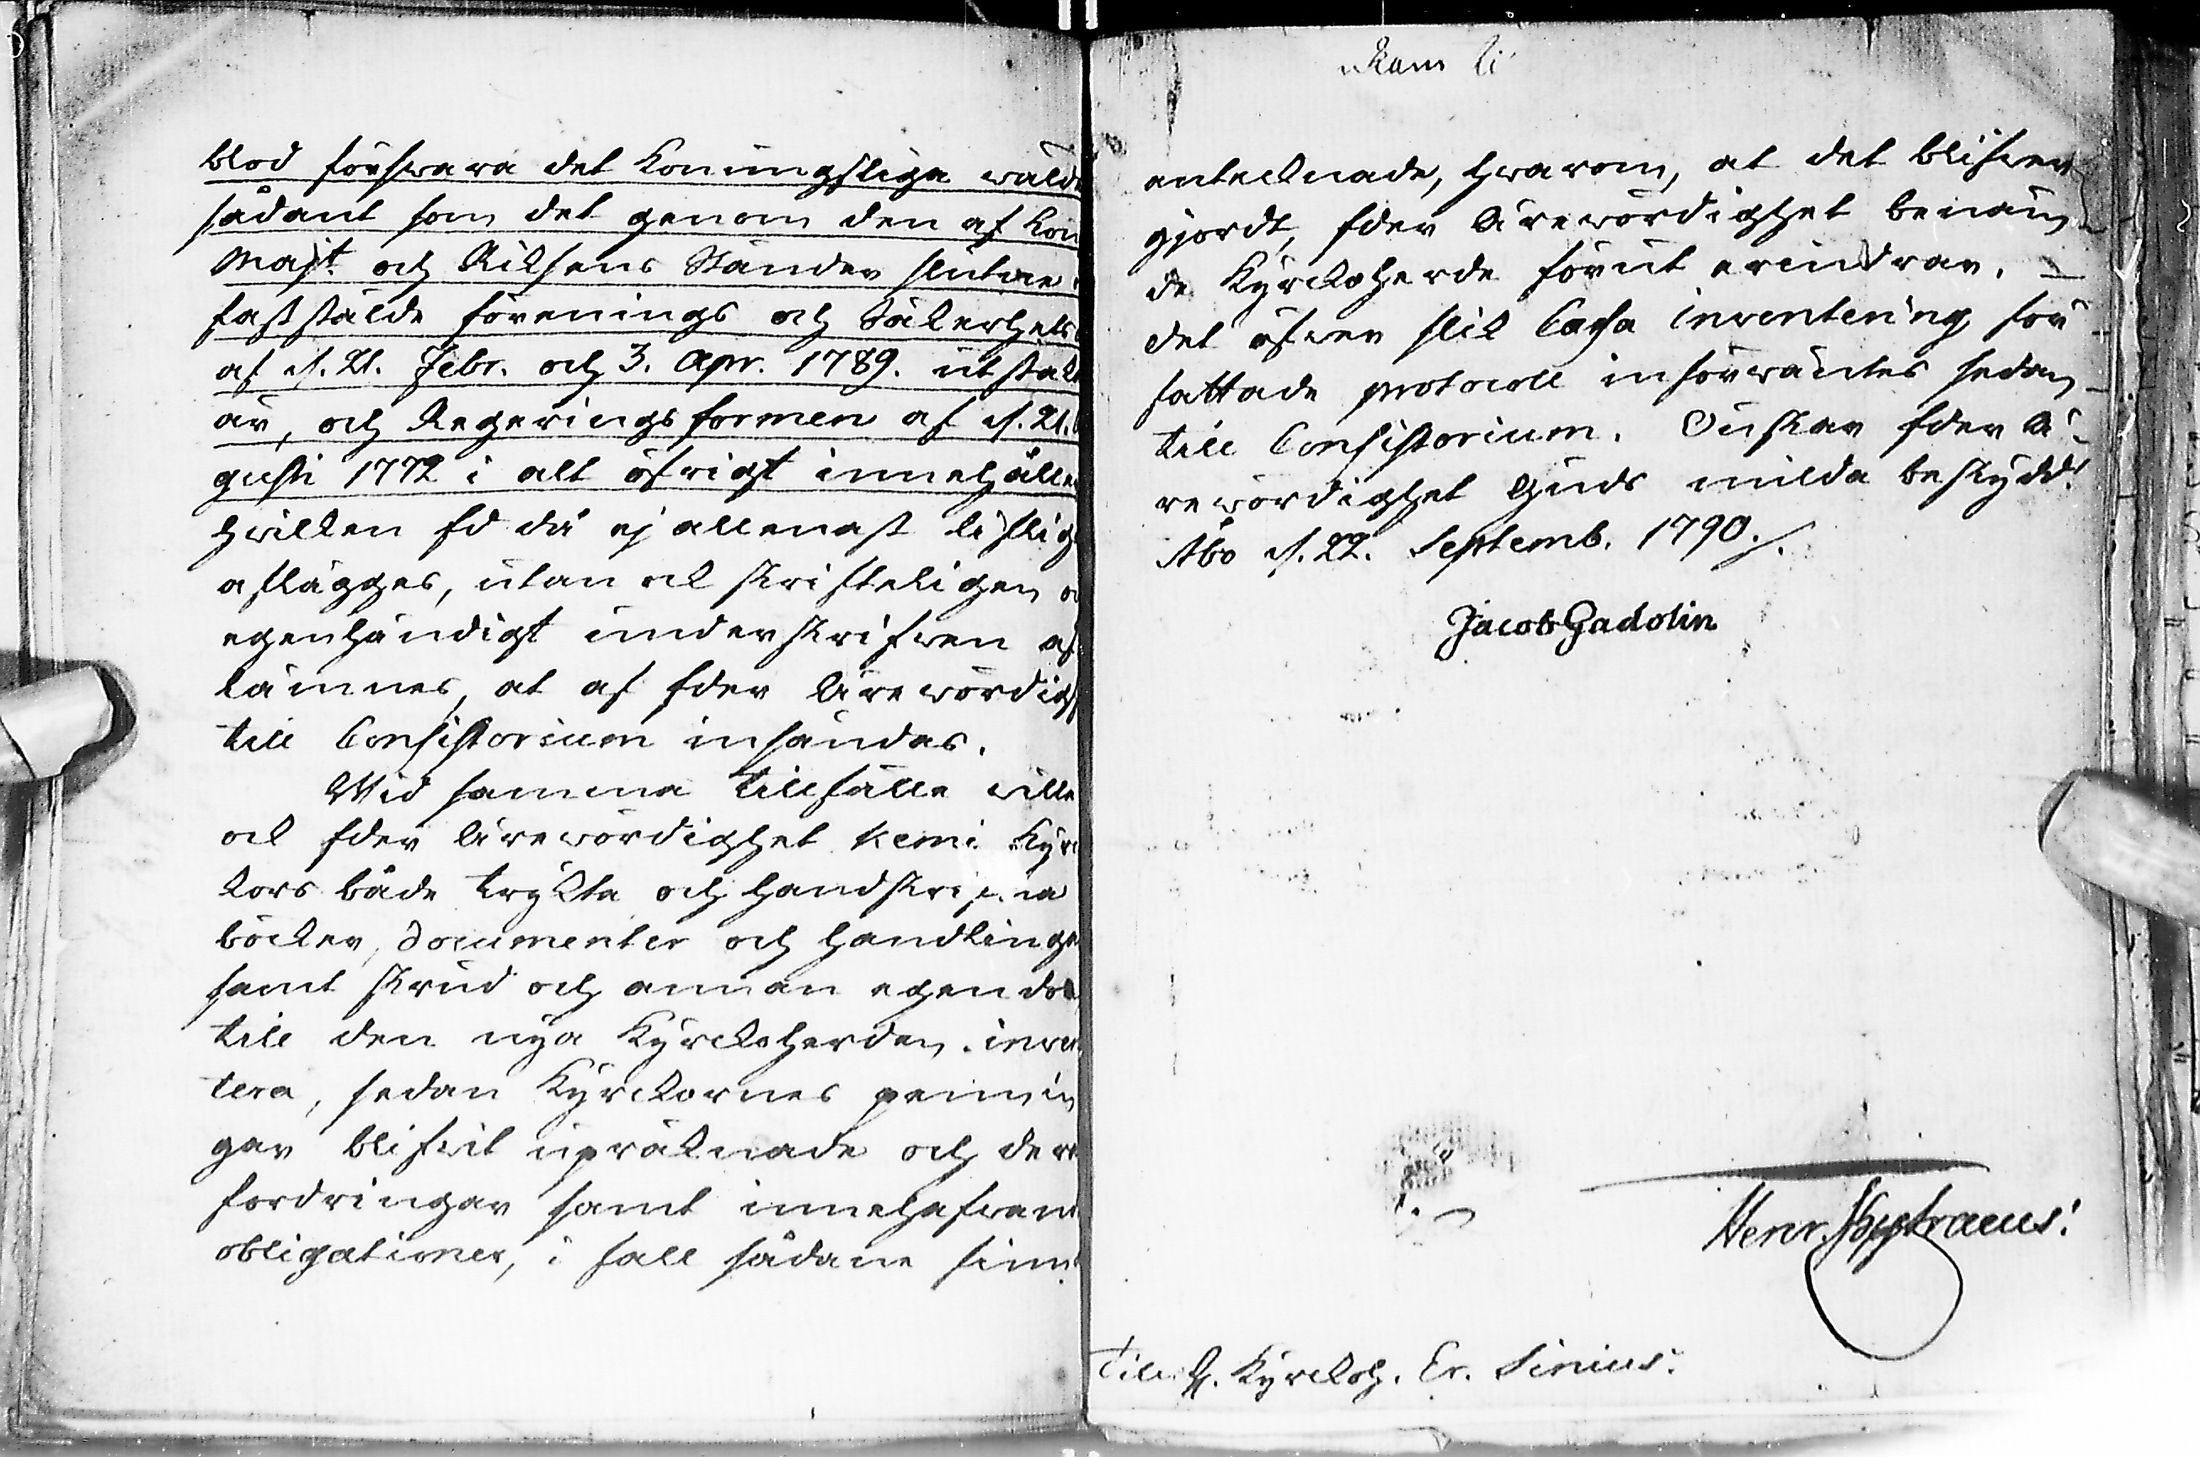 blod förswara det Konungsliga wälde
sådant som det genom den af Kon
Majt. och Riksens Ständer slutne
fastställde förenings och Säkerhets
af d. 21. Febr. och 3. Apr. 1789. utstakt
är, och Regeringsformen af d. 21.
gusti 1772 i alt öfrigt innehåller
hwilken Ed då ej allenast lifligen
aflägges, utan ock skrifteligen
egenhändigt underskrifwen af
lämnes, at af Eder Ärewördigh
till Consistorium insändas.
Wid samma tillfälle wille
ock Eder Ärewördighet Kemi Kyrc
kors både trykta och handskrifna
böcker, documenter och handlingar
samt skrud och annan egendom
till den nya Kyrckoherden inven
tera, sedan Kyrckornes pennin
gar blifwit upräknade och deras
fordringar samt innehafwande
obligationer, i fall sådane finnes
antecknade, hwarom, at det blifwer
gjordt, Eder Ärewördighet benäm
de Kyrckoherde förut erindrar. –
det öfwer slik Cassa inventering för
fattade protocoll införwäntes sedan
till Consistorium. Önskar Eder Ä-
rewördighet Guds milda beskydd!
Åbo d. 22. Septemb. 1790.
Jacob Gadolin
Henr.
Till H. Kyrckoh. Er.